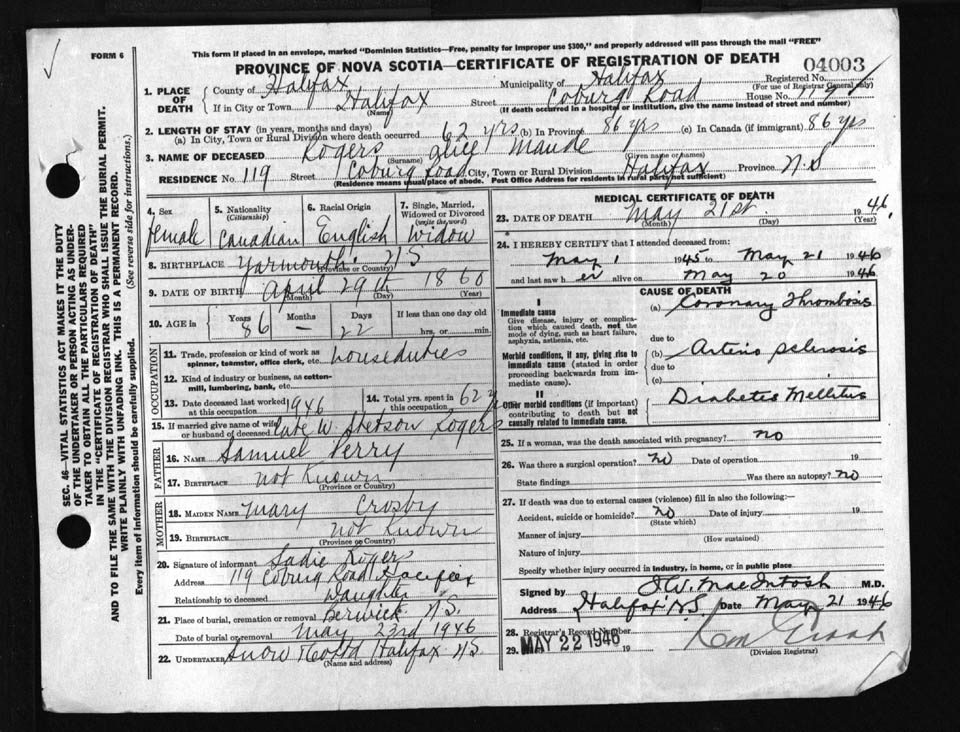 FORM 6
This form if placed in an envelope, marked "Dominion Statistics—Free, penalty for improper use $300," and properly addressed will pass through the mail "FREE"
PROVINCE OF NOVA SCOTIA—CERTIFICATE OF REGISTRATION OF DEATH
04003
1. PLACE OF DEATH
County of Halifax Municipality of Halifax Registered No.
(For use of Registrar General only)
If in City or Town Halifax Street Coburg Road House No. 119
(Name) (If death occurred in a hospital or institution, give the name instead of street and number)
2. LENGTH OF STAY (in years, months and days)
(a) In City, Town or Rural Division where death occurred 62 yrs (b) In Province 86 yrs (c) In Canada (if immigrant) 86 yrs
3. NAME OF DECEASED Rogers Alice Maude
(Surname) (Given name or names)
RESIDENCE No. 119 Street Coburg Road City, Town or Rural Division Halifax Province N.S
(Residence means usual place of abode. Post Office Address for residents in rural parts not sufficient)
4. Sex female
5. Nationality (Citizenship) Canadian
6. Racial Origin English
7. Single, Married, Widowed or Divorced (write the word) Widow
8. BIRTHPLACE Yarmouth NS
(Province or Country)
9. DATE OF BIRTH April 29th 1860
(Month) (Day) (Year)
10. AGE in Years 86 Months — Days 22 If less than one day old
hrs. or min.
OCCUPATION
11. Trade, profession or kind of work as spinner, teamster, office clerk, etc. house duties
12. Kind of industry or business, as cotton-mill, lumbering, bank, etc.
13. Date deceased last worked at this occupation 1946
14. Total yrs. spent in this occupation 62 y
15. If married give name of wife or husband of deceased late W. Stetson Rogers
FATHER
16. Name Samuel Perry
17. Birthplace not Known
(Province or Country)
MOTHER
18. Maiden Name Mary Crosby
19. Birthplace not Known
(Province or Country)
20. Signature of informant Sadie Rogers
Address 119 Coburg Road Halifax
Relationship to deceased Daughter
21. Place of burial, cremation or removal Berwick N.S.
Date of burial or removal May 23rd 1946
22. Undertaker Snow & Co Ltd Halifax NS
(Name and address)
MEDICAL CERTIFICATE OF DEATH
23. DATE OF DEATH May 21st 1946.
(Month) (Day) (Year)
24. I HEREBY CERTIFY that I attended deceased from:
May 1 1945 to May 21 1946
and last saw h er alive on May 20 1946
CAUSE OF DEATH
I
Immediate cause
Give disease, injury or complication which caused death, not the mode of dying, such as heart failure, asphyxia, asthenia, etc.
(a) Coronary Thrombosis
due to
Morbid conditions, if any, giving rise to immediate cause (stated in order proceeding backwards from immediate cause).
(b) Arterio sclerosis
due to
(c)
II
Other morbid conditions (if important) contributing to death but not causally related to immediate cause.
Diabetes Mellitus
25. If a woman, was the death associated with pregnancy? no
26. Was there a surgical operation? no Date of operation 19
State findings Was there an autopsy? no
27. If death was due to external causes (violence) fill in also the following:—
Accident, suicide or homicide? no Date of injury 19
(State which)
Manner of injury
(How sustained)
Nature of injury
Specify whether injury occurred in industry, in home, or in public place
Signed by MacIntosh M.D.
Address Halifax NS Date May 21 1946
28. Registrar's Record Number
29. MAY 22 1946 19
(Division Registrar)
SEC. 46—VITAL STATISTICS ACT MAKES IT THE DUTY
OF THE UNDERTAKER OR PERSON ACTING AS UNDERTAKER
TO OBTAIN ALL THE PARTICULARS REQUIRED
IN THE "CERTIFICATE OF REGISTRATION OF DEATH"
AND TO FILE THE SAME WITH THE DIVISION REGISTRAR WHO SHALL ISSUE THE BURIAL PERMIT.
WRITE PLAINLY WITH UNFADING INK. THIS IS A PERMANENT RECORD.
Every item of information should be carefully supplied. (See reverse side for instructions.)